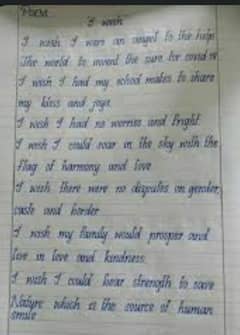 Poem
I wish
I wish I were an angel to the help
The world to invent the cure for covid 19
I wish I had my school mates to share
my bless and joys
I wish I had no worries and fright
I wish I could soar in the sky with the
flag of harmony and love
I wish there were no disputes on gender,
caste and border
I wish my family would prosper and
live in love and kindness
I wish I could bear strength to save
Nature which is the source of human
smile